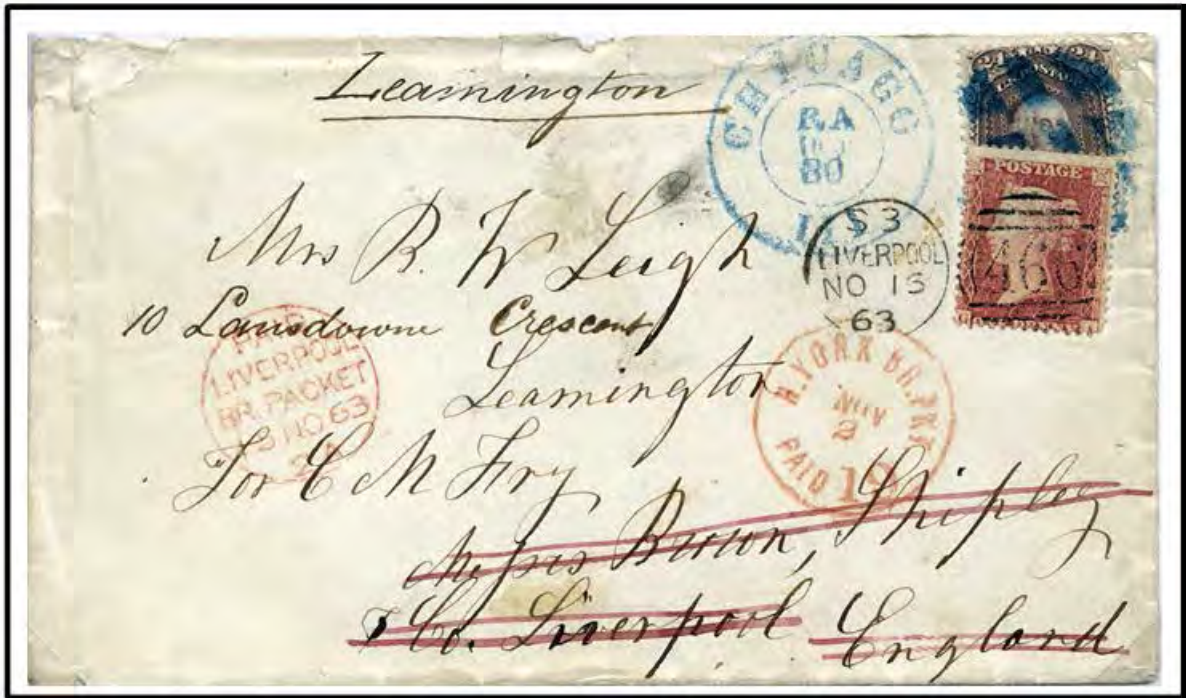 Leamington
CHICAGO
30
POSTAGE
466
S3
LIVERPOOL
NO 13
63
Mrs R. W Leigh
10 Lansdowne Crescent
Leamington
LIVERPOOL
BR. PACKET
NO 63
N. YORK BR. PKT
NOV
PAID 19
For C M Fry
Messrs Brown, Shipley
& Co. Liverpool England